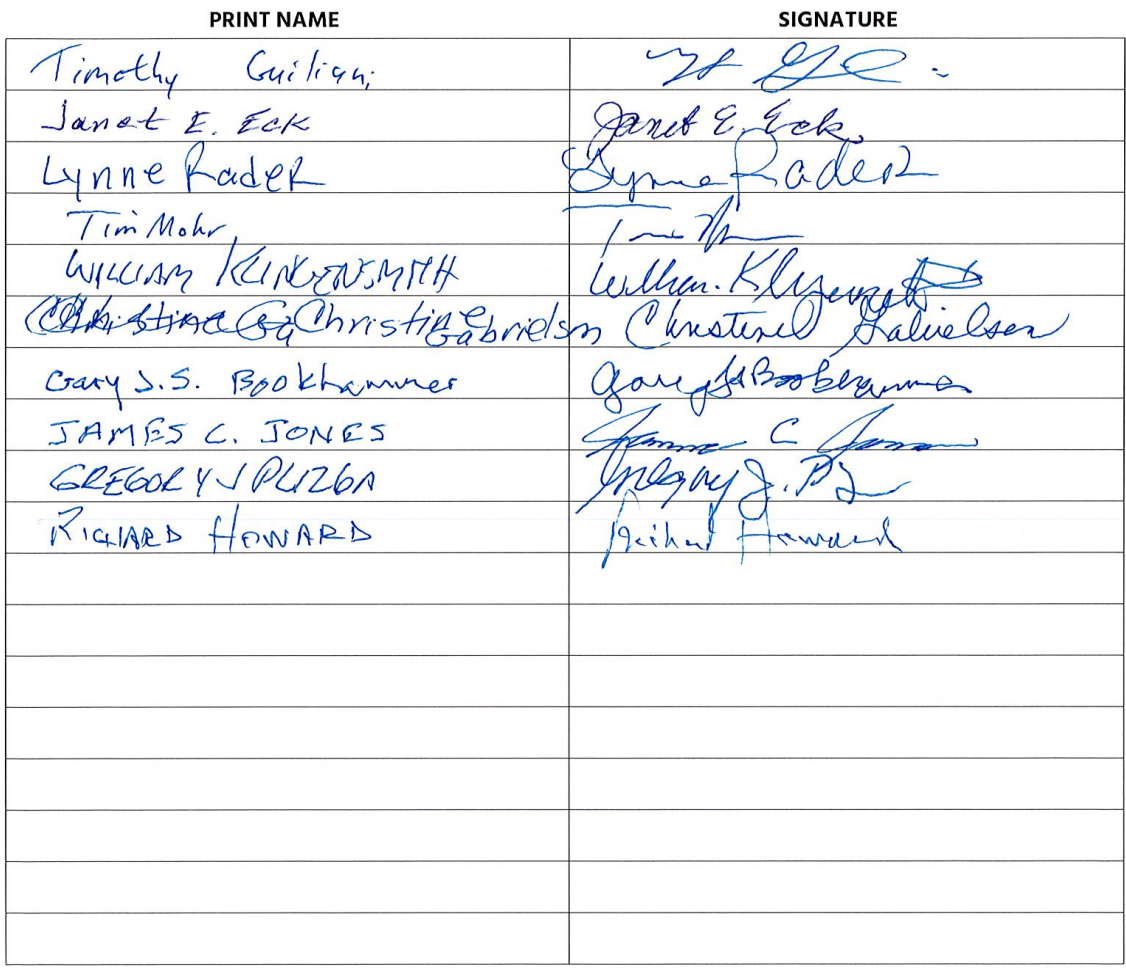 PRINT NAME SIGNATURE
Timothy Guiliani
Janet E. Eck Janet E. Eck
Lynne Rader Lynne Rader
Tim Mohr
WILLIAM KLINGENSMITH William
Christine Gabrielson Christine Gabrielson
Gary J.S. Bookhammer Gary Bookhammer
JAMES C. JONES James C Jones
GREGORY J PUZGA Gregory J.
RICHARD HOWARD Richard Howard